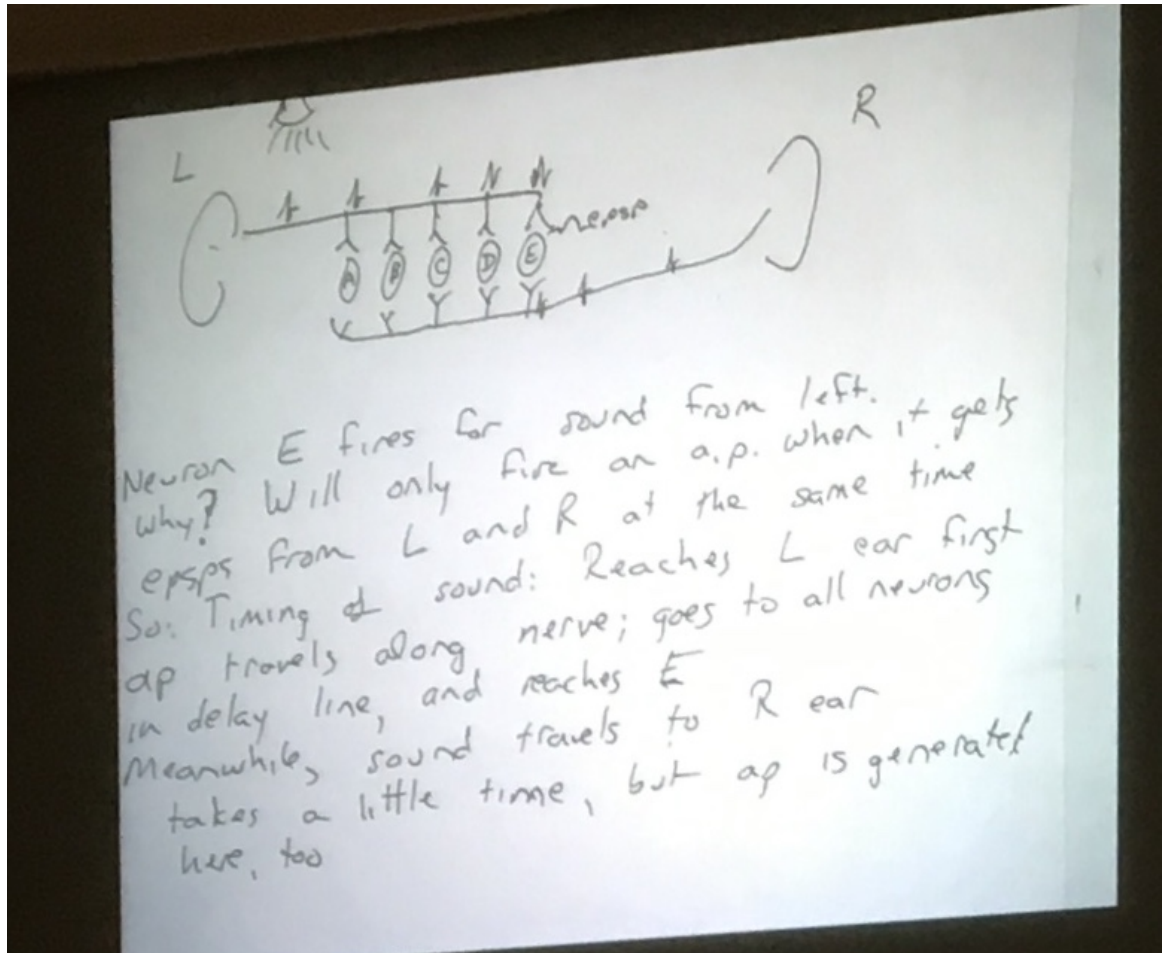 L
R
A B C D E
epsp
Neuron E fires for sound from left.
Why? Will only fire an a.p. when it gets
epsps from L and R at the same time
So: Timing of sound: Reaches L ear first
ap travels along nerve; goes to all neurons
in delay line, and reaches E
Meanwhile, sound travels to R ear
takes a little time, but ap is generated
here, too